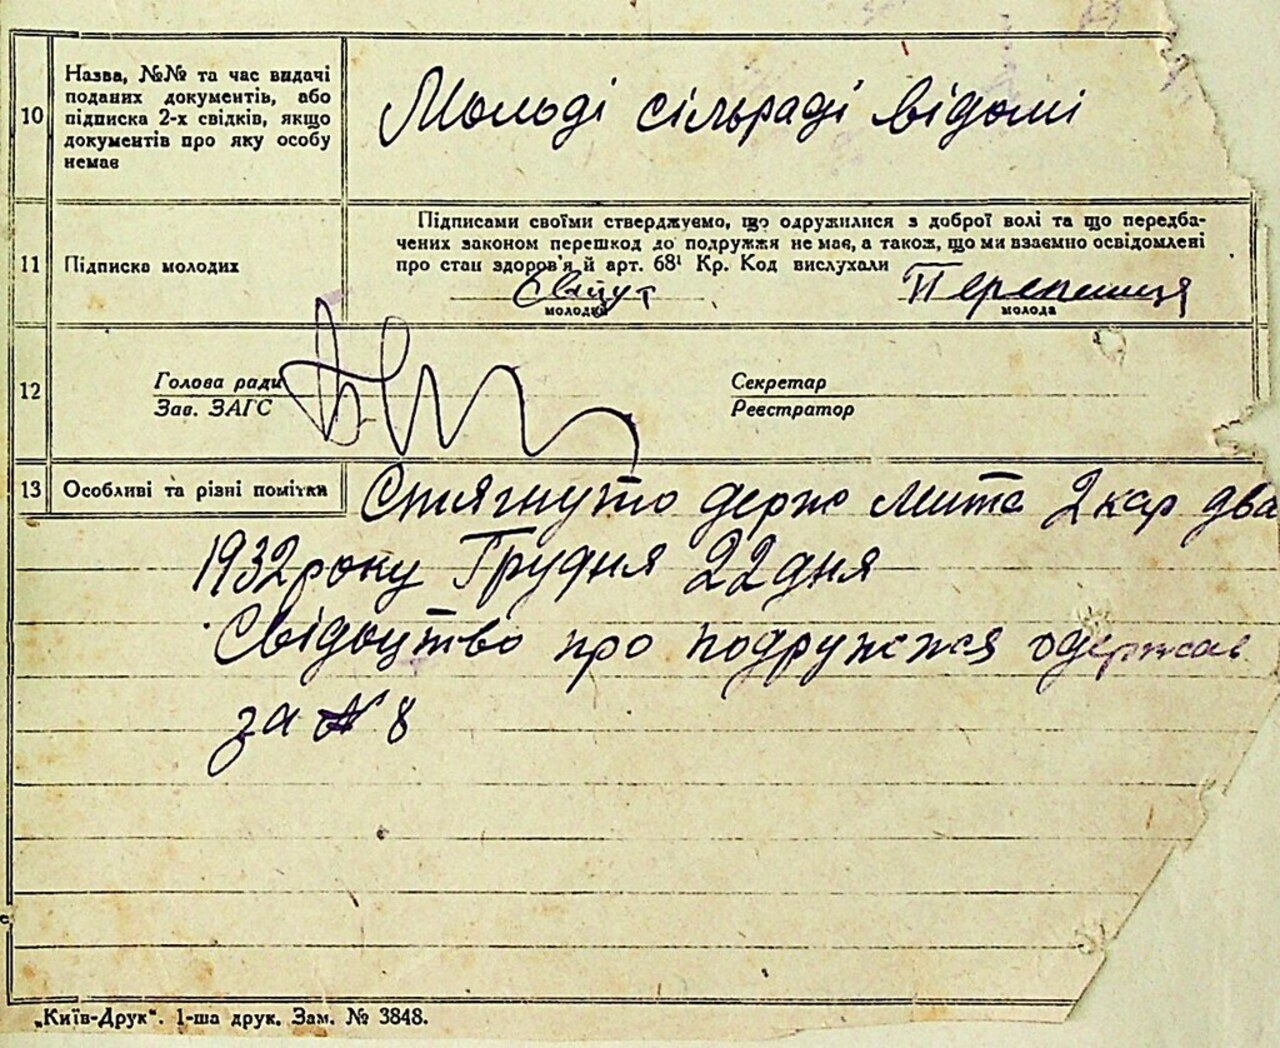 10
Назва, №№ та час видачі
поданих документів, або
підписка 2-х свідків, якщо
документів про яку особу
немає
Молоді сільраді відомі
11
Підписка молодих
Підписами своїми стверджуємо, що одружилися з доброї волі та що передба-
чених законом перешкод до подружжя не має, а також, що ми взаємно освідомлені
про стан здоров'я й арт. 68¹ Кр. Код вислухали
молодий
молода
12
Голова ради
Зав. ЗАГС
Секретар
Реєстратор
13
Особливі та різні помітки
Стягнуто держ мита 2 кар два
1932 року Грудня 22 дня
Свідоцтво про подружжя одержав
за № 8
„Київ-Друк“. 1-ша друк. Зам. № 3848.